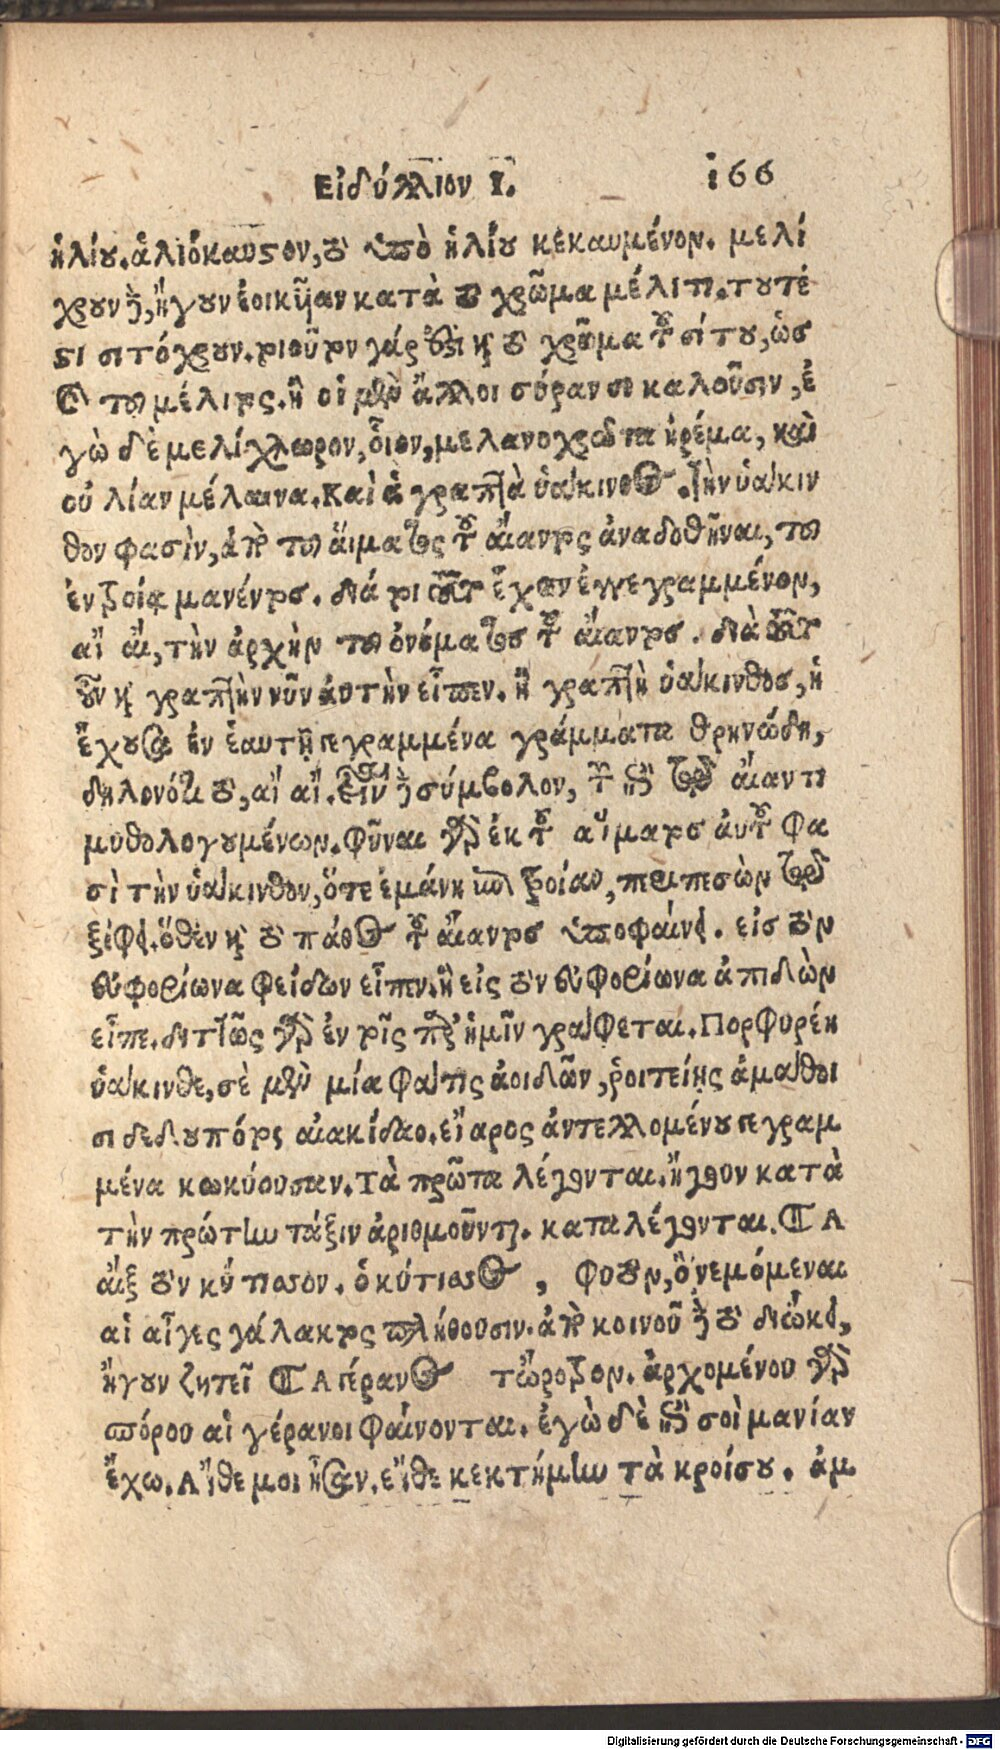 Εἰδύλλιον I. 166
ἡλίου. ἁλιόκαυστον, τὸ ὑπὸ ἡλίου κεκαυμένον. μελί
χρουν δὲ, ἤγουν ἐοικυῖαν κατὰ τὸ χρῶμα μέλιτι. τουτέ
στι σιτόχρουν. τοιοῦτον γάρ ἐστι καὶ τὸ χρῶμα τοῦ σίτου, ὡς
καὶ τοῦ μέλιτος. ἢ οἱ μὲν ἄλλοι σύραν σε καλοῦσιν, ἐ
γὼ δὲ μελίχλωρον, οἷον, μελανοχρῶτα ἠρέμα, καὶ
οὐ λίαν μέλαινα. Καὶ ἁ γραπτὰ ὑάκινθος. τὴν ὑάκιν
θον φασὶν, ἀπὸ τοῦ αἵματος τοῦ αἴαντος ἀναδοθῆναι, τοῦ
ἐν τροίᾳ μανέντος. διά τοι τοῦτο ἔχειν ἐγγεγραμμένον,
αἲ αἲ, τὴν ἀρχὴν τοῦ ὀνόματος τοῦ αἴαντος. διὰ τοῦτο
οὖν καὶ γραπτὴν νῦν αὐτὴν εἶπεν. ἢ γραπτὴ ὑάκινθος, ἡ
ἔχουσα ἐν ἑαυτῇ γεγραμμένα γράμματα θρηνώδη,
δηλονότι τὸ, αἲ αἲ. ἔστιν δὲ σύμβολον, τῶν ἐπὶ τῷ αἴαντι
μυθολογουμένων. φῦναι γὰρ ἐκ τοῦ αἵματος αὐτοῦ φα
σὶ τὴν ὑάκινθον, ὅτε ἐμάνη ὑπὸ τροίαν, περιπεσὼν τῷ
ξίφει. ὅθεν καὶ τὸ πάθος τοῦ αἴαντος ὑποφαίνει. εἰς τὸν
εὐφορίωνα φείδων εἶπεν. ἢ εἰς τὸν εὐφορίωνα ἀπιδὼν
εἶπε. διττῶς γὰρ ἐν τοῖς παρ' ἡμῖν γράφεται. Πορφυρέη
ὑάκινθε, σὲ μὲν μία φάτις ἀοιδῶν, ῥοιτείης ἀμάθοι
σι δεδουπότος αἰακίδαο. εἴαρος ἀντελλομένου γεγραμ
μένα κωκύουσαν. Τὰ πρῶτα λέγονται. ἤγουν κατὰ
τὴν πρώτην τάξιν ἀριθμοῦνται. καταλέγονται. Τὰ
αἲξ τὸν κύτισον. ὁ κύτισος, φυτὸν, ὃ νεμόμεναι
αἱ αἶγες γάλακτος πλήθουσιν. ἀπὸ κοινοῦ δὲ τὸ διώκει,
ἤγουν ζητεῖ Τὰ γέρανος τὤροτρον. ἀρχομένου γὰρ
σπόρου αἱ γέρανοι φαίνονται. ἐγὼ δὲ ἐπὶ σοὶ μανίαν
ἔχω. Αἴθε μοι ἦσαν. εἴθε κεκτήμην τὰ κροίσου. ἀμ
Digitalisierung gefördert durch die Deutsche Forschungsgemeinschaft - DFG